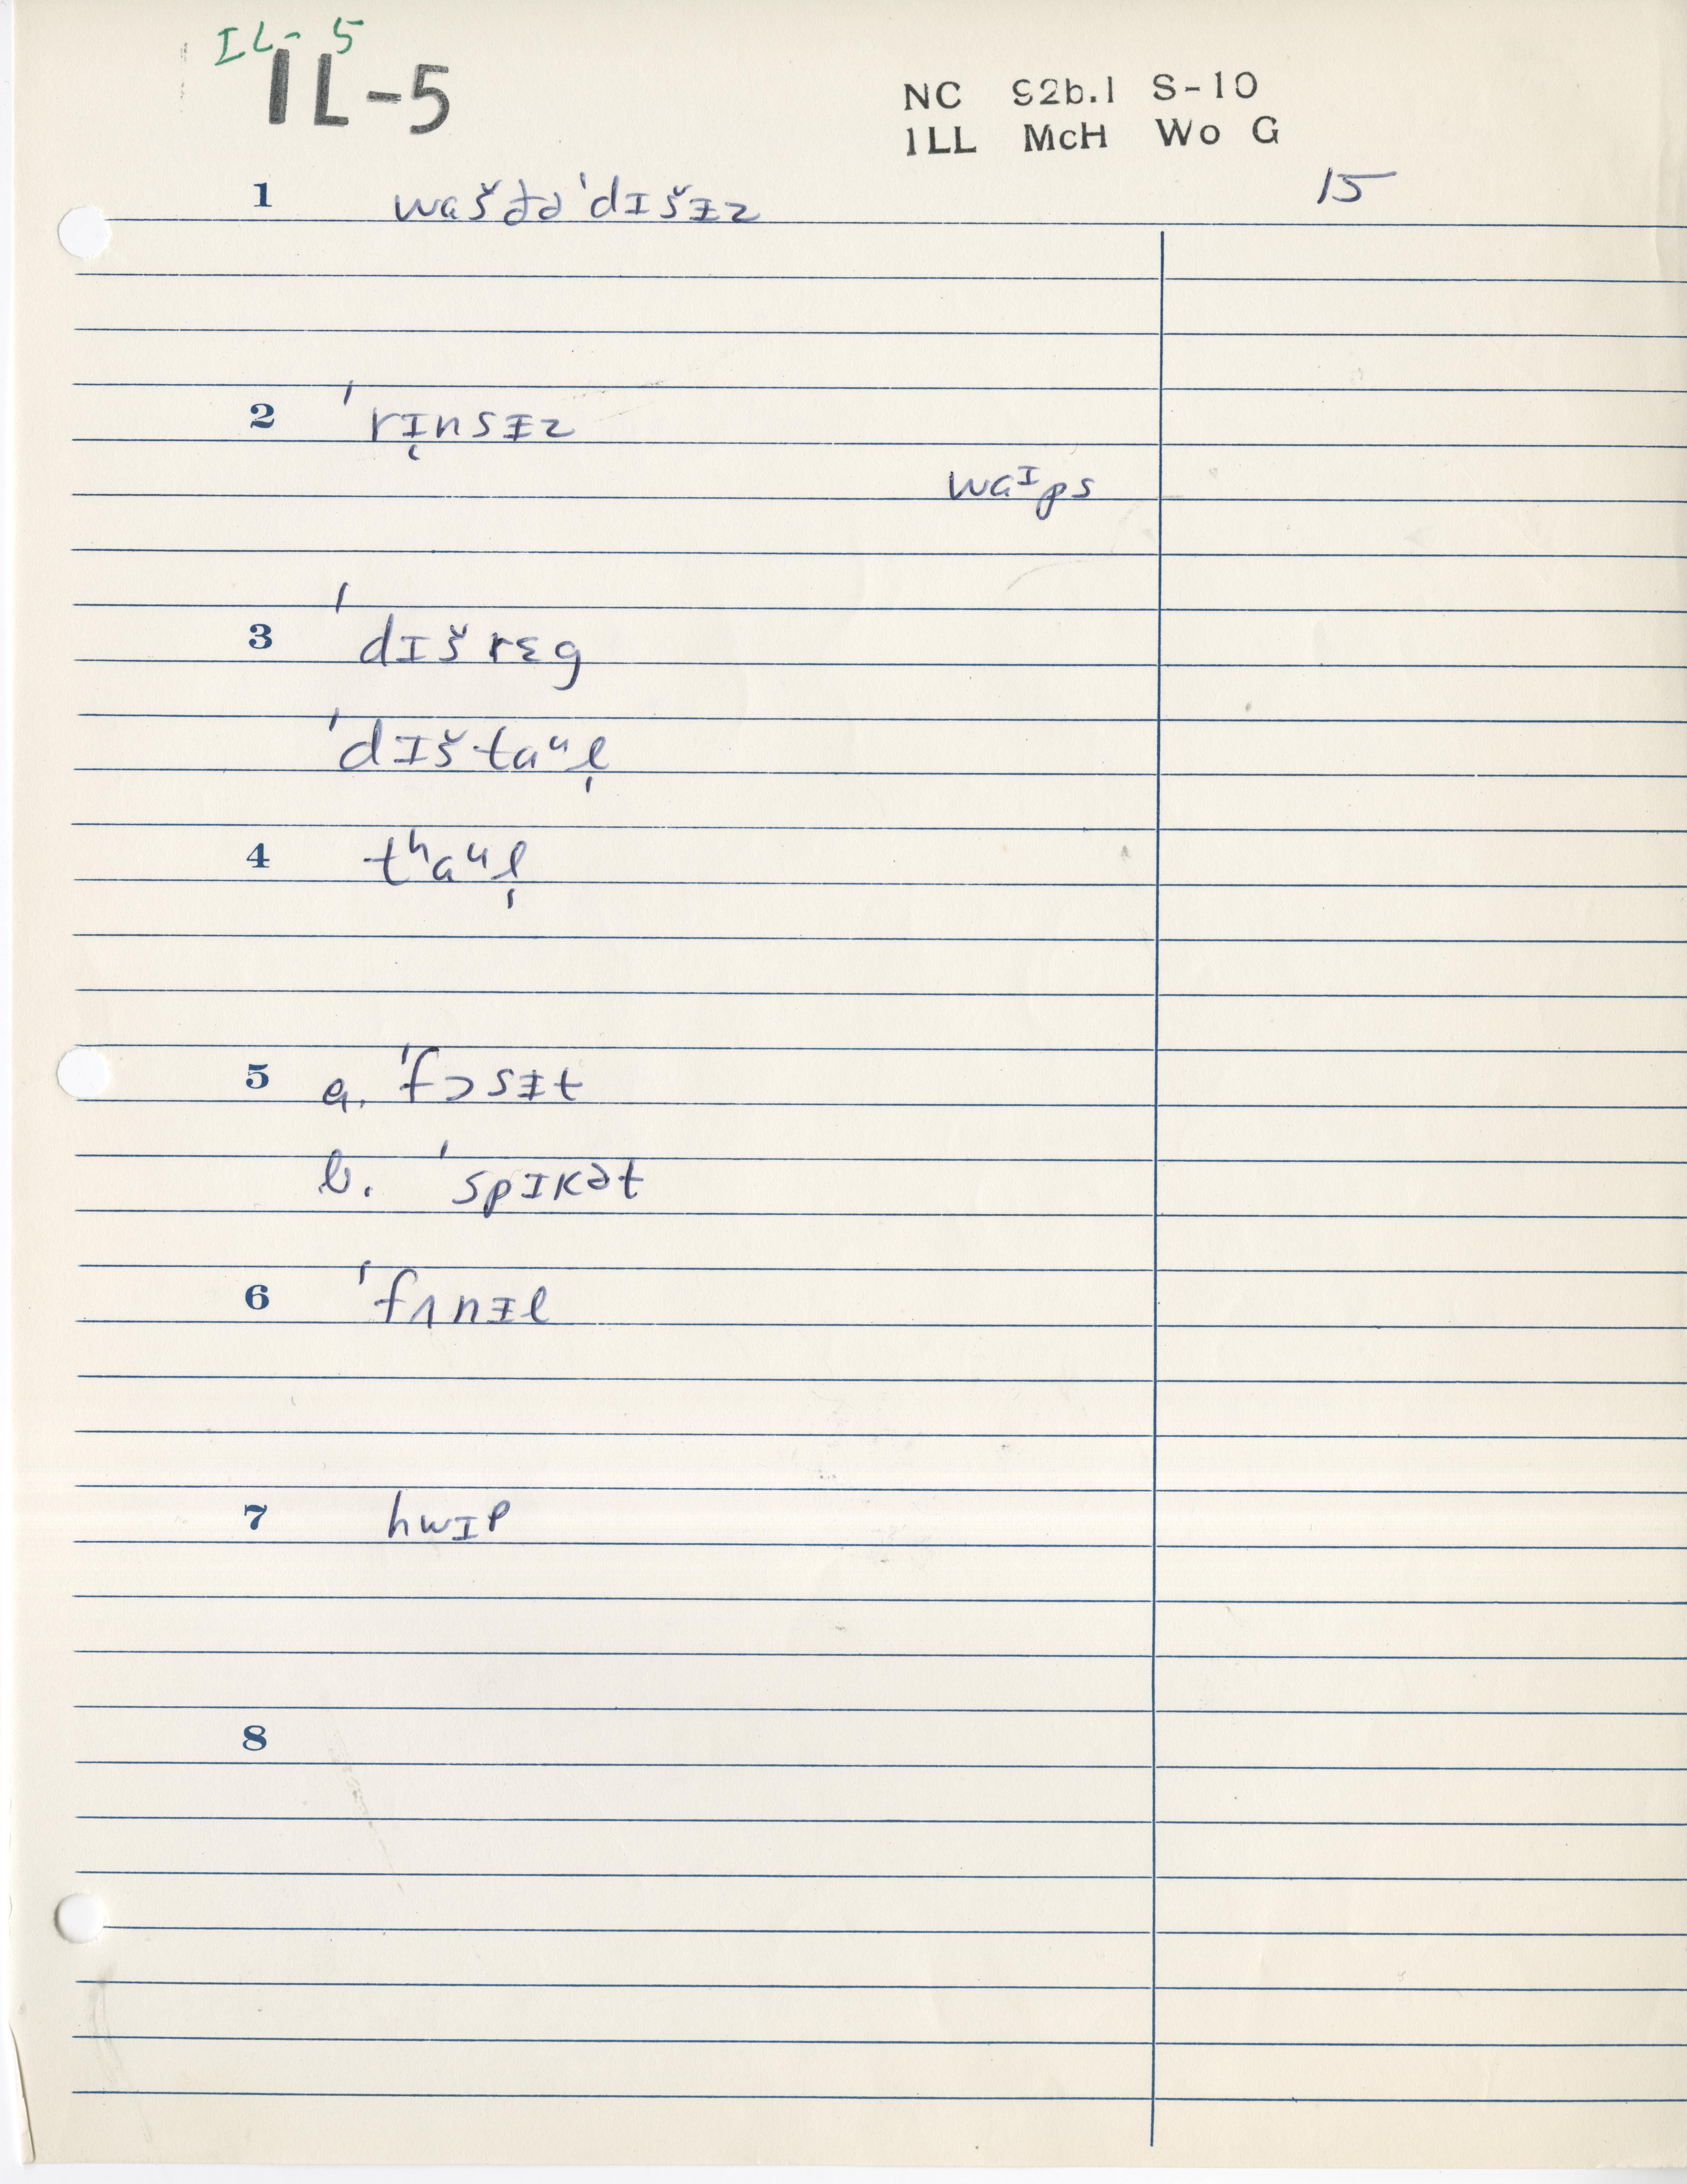 IL-5
IL-5
NC S2b.1 S-10
ILL McH Wo G
15
1 wašðə'dɪšɨz
2 'rɪ̨nsɨz
waᴵps
3 'dɪšrɛg
'dɪštaᵘl̩
4 tʰaᵘl̩
5 a. 'fɔsɨt
b. 'spɪkət
6 'fʌnɨl
7 hwɪp
8